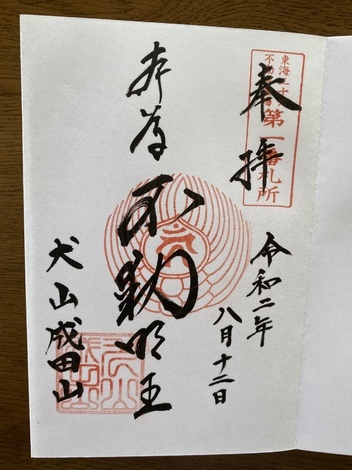 東海三十六
不動尊霊場
第一番札所
奉拝
令和二年
八月十二日
本尊
不動明王
犬山成田山